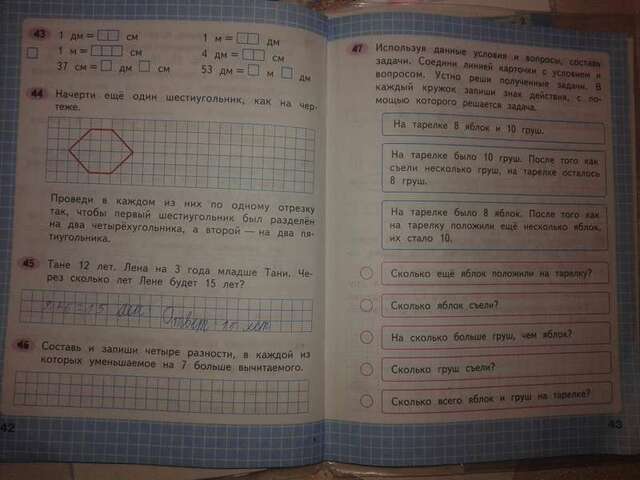 43 1 дм = см
1 м = см
37 см = дм см
1 м = дм
4 дм = см
53 дм = м дм
44 Начерти ещё один шестиугольник, как на чер-
теже.
Проведи в каждом из них по одному отрезку
так, чтобы первый шестиугольник был разделён
на два четырёхугольника, а второй — на два пя-
тиугольника.
45 Тане 12 лет. Лена на 3 года младше Тани. Че-
рез сколько лет Лене будет 15 лет?
46 Составь и запиши четыре разности, в каждой из
которых уменьшаемое на 7 больше вычитаемого.
42
47 Используя данные условия и вопросы, составь
задачи. Соедини линией карточки с условием и
вопросом. Устно реши полученные задачи. В
каждый кружок запиши знак действия, с по-
мощью которого решается задача.
На тарелке 8 яблок и 10 груш.
На тарелке было 10 груш. После того как
съели несколько груш, на тарелке осталось
8 груш.
На тарелке было 8 яблок. После того как
на тарелку положили ещё несколько яблок,
их стало 10.
Сколько ещё яблок положили на тарелку?
Сколько яблок съели?
На сколько больше груш, чем яблок?
Сколько груш съели?
Сколько всего яблок и груш на тарелке?
43